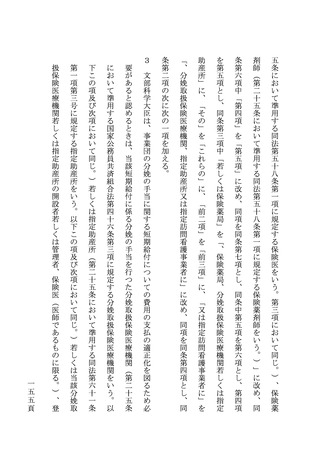 五条において準用する同法第五十八条第一項に規定する保険医をいう。第三項において同じ。）、保険薬
剤師（第二十五条において準用する同法第五十八条第一項に規定する保険薬剤師をいう。）」に改め、同
条第六項中「第四項」を「第五項」に改め、同項を同条第七項とし、同条中第五項を第六項とし、第四項
を第五項とし、同条第三項中「若しくは保険薬局」を「、保険薬局、分娩取扱保険医療機関若しくは指定
助産所」に、「その」を「これらの」に、「前二項」を「前三項」に、「又は指定訪問看護事業者に」を
「、分娩取扱保険医療機関、指定助産所又は指定訪問看護事業者に」に改め、同項を同条第四項とし、同
条第二項の次に次の一項を加える。
３　文部科学大臣は、事業団の分娩の手当に関する短期給付についての費用の支払の適正化を図るため必
要があると認めるときは、当該短期給付に係る分娩の手当を行つた分娩取扱保険医療機関（第二十五条
において準用する国家公務員共済組合法第四十六条第三項に規定する分娩取扱保険医療機関をいう。以
下この項及び次項において同じ。）若しくは指定助産所（第二十五条において準用する同法第六十一条
第一項第三号に規定する指定助産所をいう。以下この項及び次項において同じ。）若しくは当該分娩取
扱保険医療機関若しくは指定助産所の開設者若しくは管理者、保険医（医師であるものに限る。）、登
一五五頁